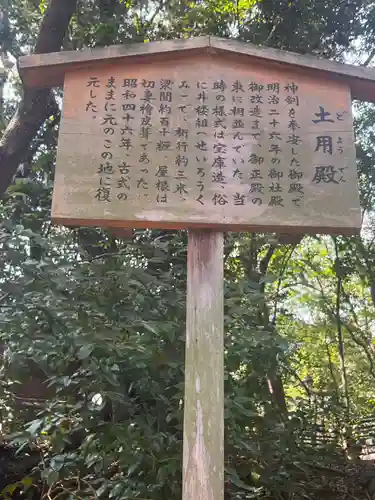 土用殿
どようでん
神剣を奉安した御殿で
明治二十六年の御社殿
御改造まで、御正殿の
東に相並んでいた。当
時の様式は宝庫造、俗
に井楼組「せいろうぐ
み」で、桁行約三米、
梁間約百十糎、屋根は
初妻檜皮葺であった。
昭和四十六年、古式の
ままに元のこの地に復
元した。